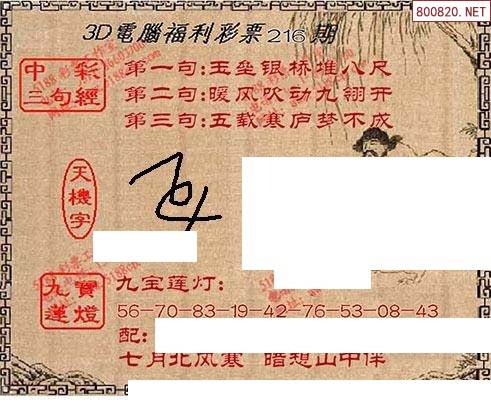 800820.NET
3D電腦福利彩票216期
中彩
三句經
第一句:玉垒银桥堆八尺
第二句:暖风吹动九翎开
第三句:五载寒庐梦不成
天機字
九寶
蓮燈
九宝莲灯:
56-70-83-19-42-76-53-08-43
配:
七月北风寒 暗想山中